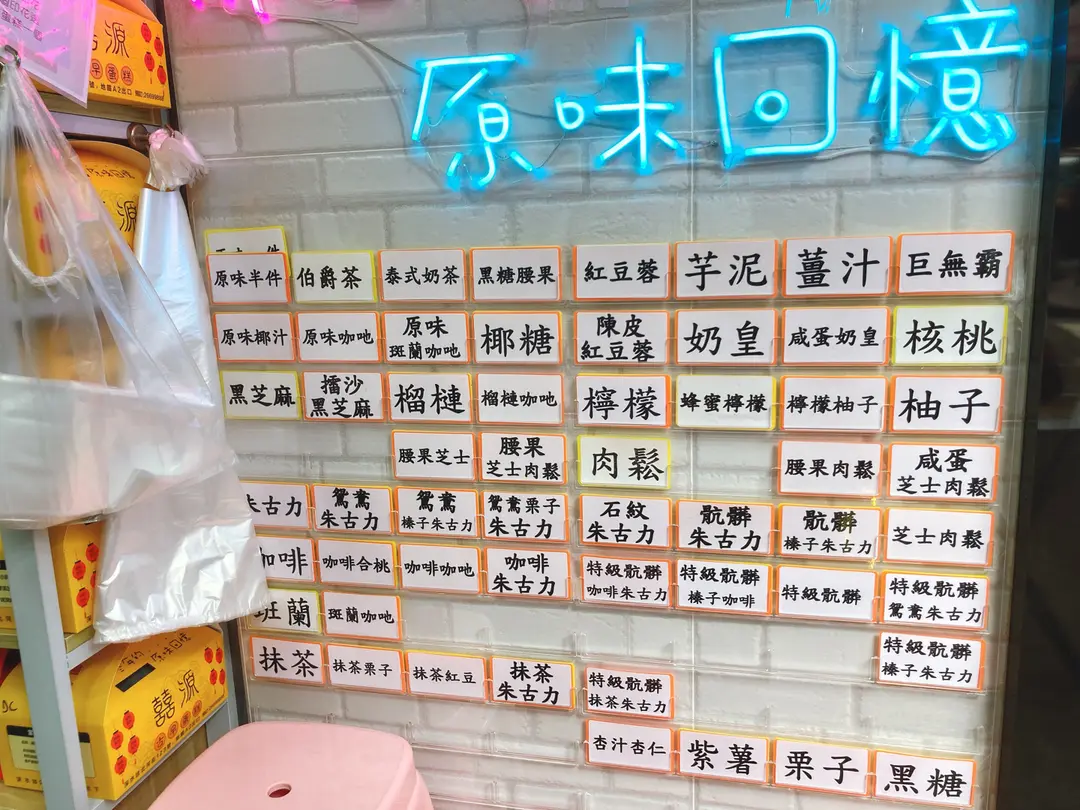 原味回憶
原味半件
伯爵茶
泰式奶茶
黑糖腰果
紅豆蓉
芋泥
薑汁
巨無霸
原味椰汁
原味咖吔
原味
斑蘭咖吔
椰糖
陳皮
紅豆蓉
奶皇
咸蛋奶皇
核桃
黑芝麻
擂沙
黑芝麻
榴槤
榴槤咖吔
檸檬
蜂蜜檸檬
檸檬柚子
柚子
腰果芝士
腰果
芝士肉鬆
肉鬆
腰果肉鬆
咸蛋
芝士肉鬆
朱古力
鴛鴦
朱古力
鴛鴦
榛子朱古力
鴛鴦栗子
朱古力
石紋
朱古力
骯髒
朱古力
骯髒
榛子朱古力
芝士肉鬆
咖啡
咖啡合桃
咖啡咖吔
咖啡
朱古力
特級骯髒
咖啡朱古力
特級骯髒
榛子咖啡
特級骯髒
特級骯髒
鴛鴦朱古力
斑蘭
斑蘭咖吔
特級骯髒
榛子朱古力
抹茶
抹茶栗子
抹茶紅豆
抹茶
朱古力
特級骯髒
抹茶朱古力
杏汁杏仁
紫薯
栗子
黑糖
源
早蛋糕
原味回憶
囍源